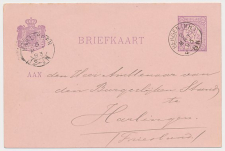 BRIEFKAART
AAN den Heer Ambtenaar van
den Burgerlijken Stand
te
Harlingen
(Friesland)